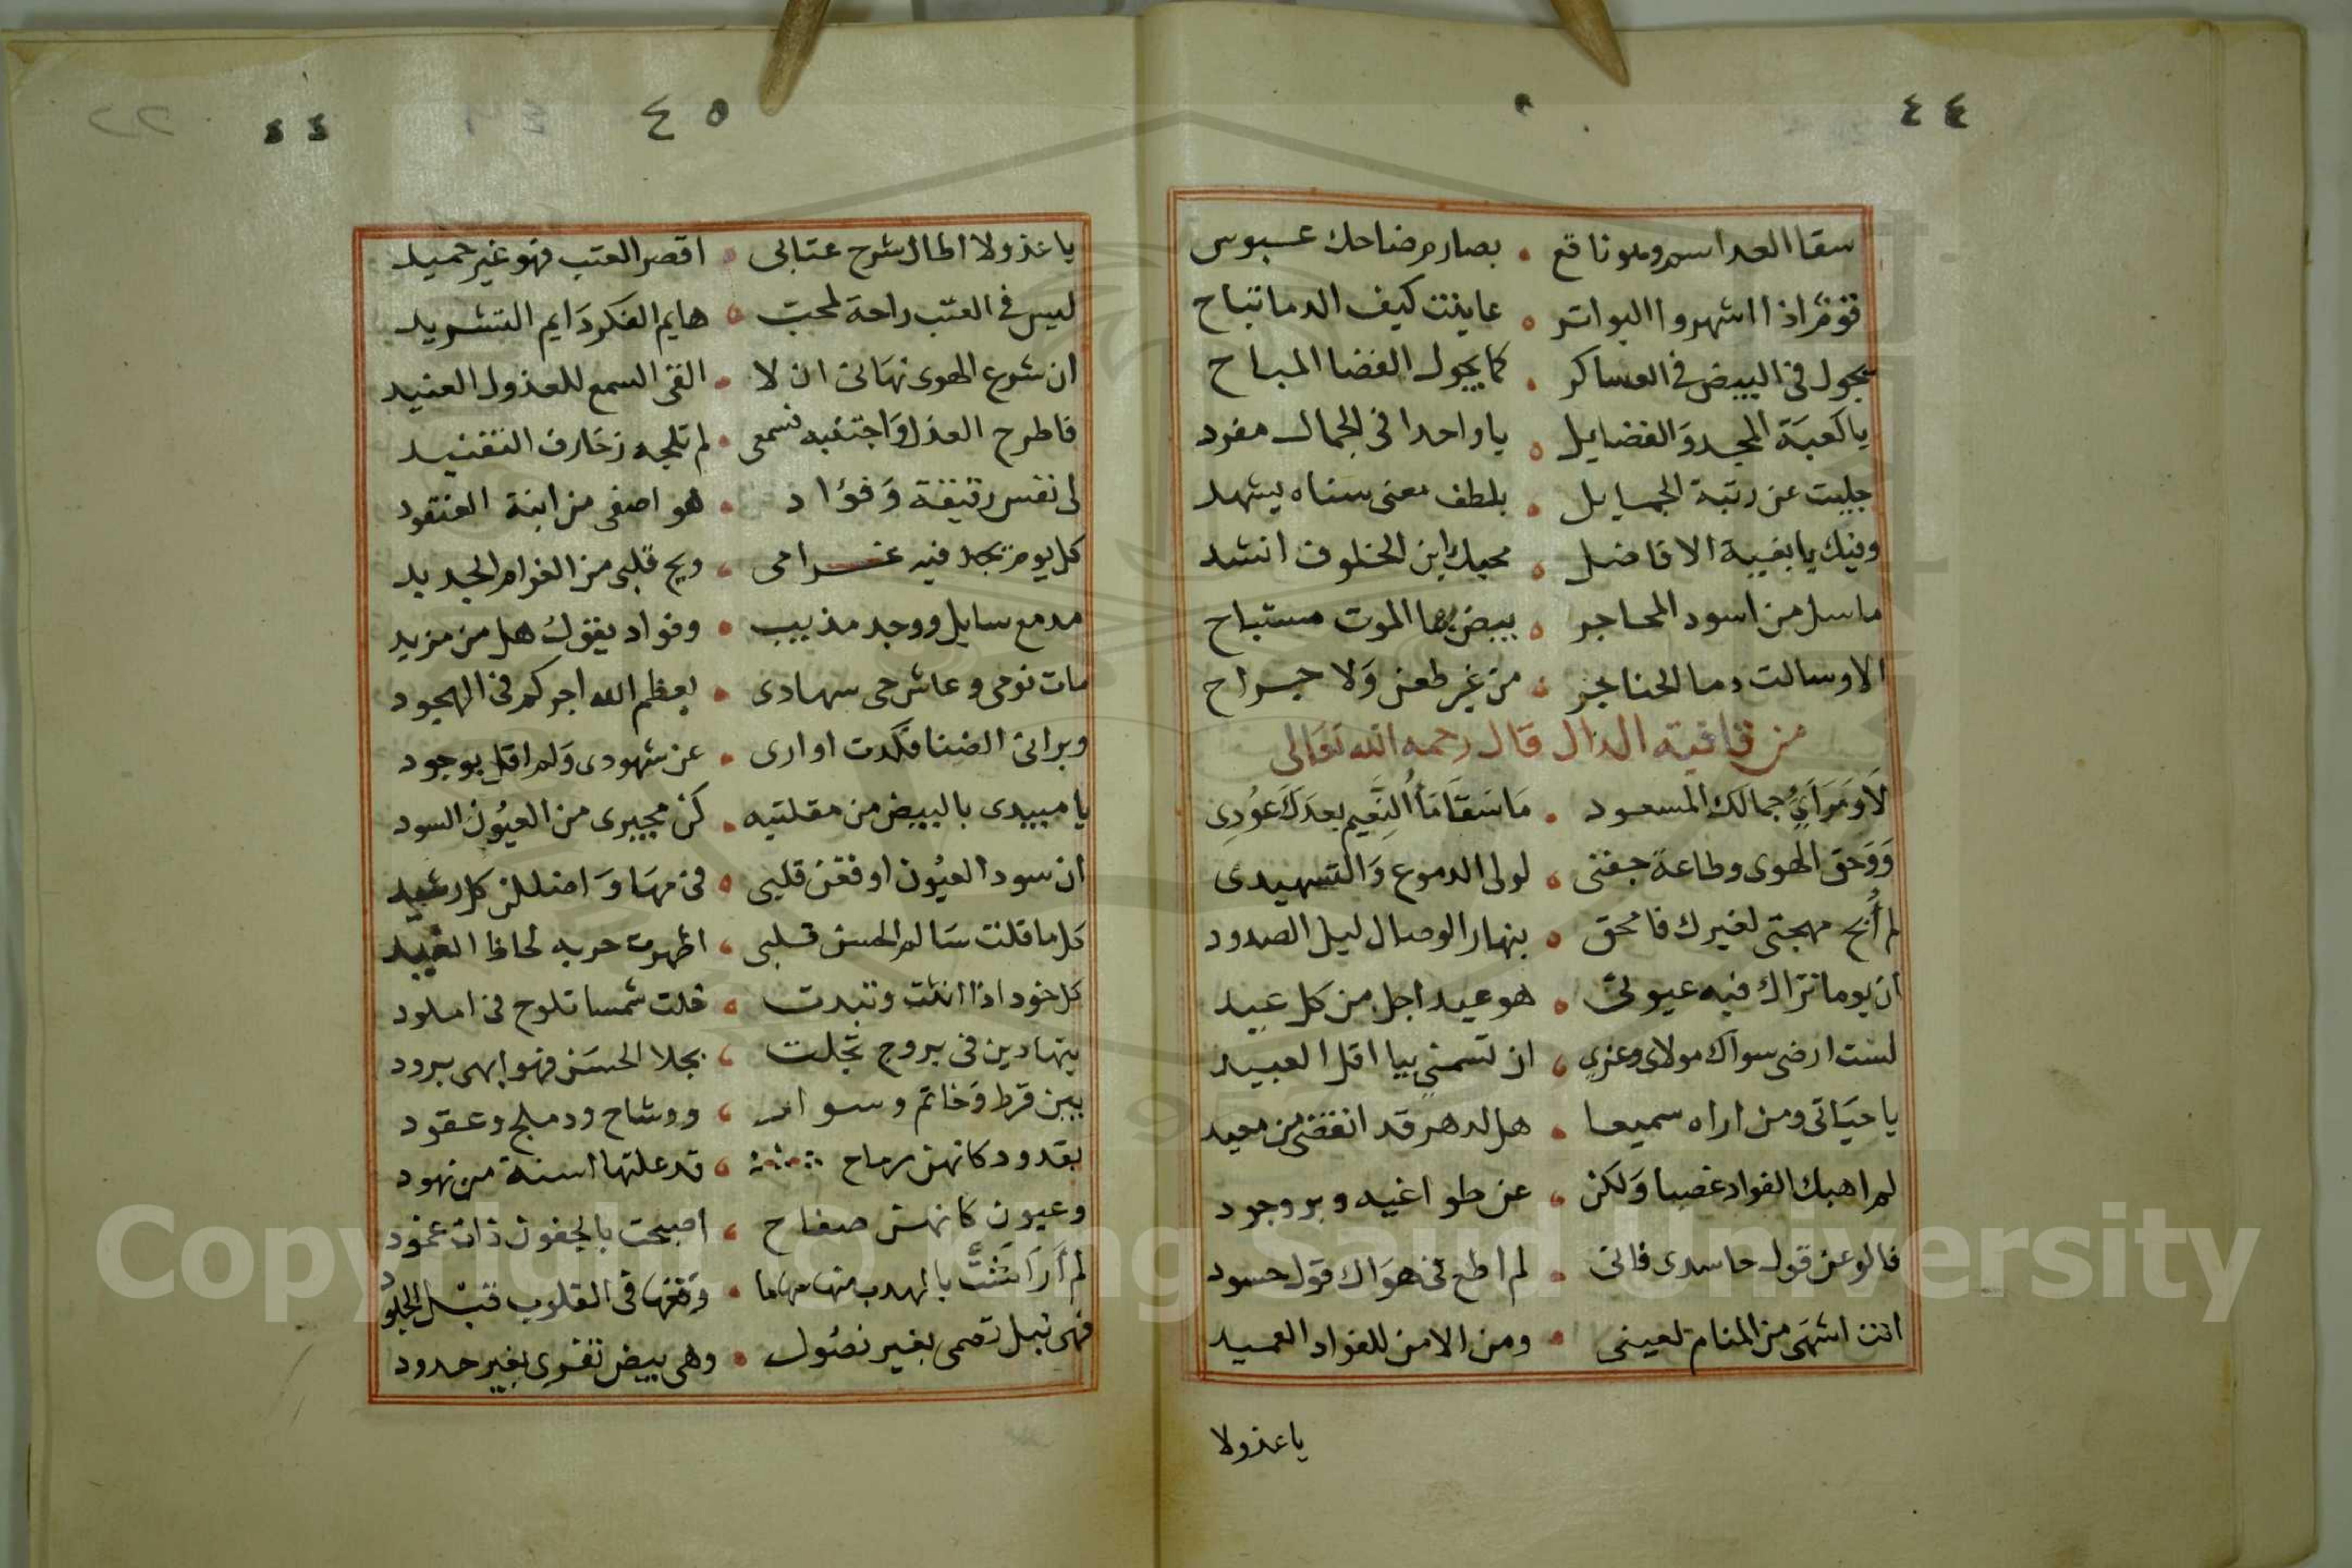 ٤٤
سقا العدا سم وهو ناقع • بصارم ضاحك عبوس
قوم اذا اشهروا البواتر • عاينت كيف الدما تباح
يجول في البيض في العساكر • كما يجول الفضا المباح
يا كعبة المجد والفضايل • يا واحدا في الجمال مفرد
جليت عن رتبة الجمايل • بلطف معنى سناه يشهد
وفيك يا بغية الافاضل • محبك ابن الخلوف انشد
ما سل من اسود المحاجر • بيض بها الموت مستباح
الا وسالت دما الحناجر • من غير طعن ولا جراح
من قافية الدال قال رحمه الله تعالى
لا ومرأي جمالك المسعود • ما سقا ماأ النعيم بعدك عودي
ووحق الهوى وطاعة جفني • لولي الدموع والتسهيدى
لم أبح مهجتي لغيرك فامحق • بنهار الوصال ليل الصدود
ان يوما تراك فيه عيوني • هو عيد اجل من كل عيد
لست ارضى سواك مولاى وعزي • ان تسمني بيا اقل العبيد
يا حياتى ومن اراه سميعا • هل لدهر قد انقضى من معيد
لم اهبك الفواد غصبا ولكن • عن طواغيه وبر وجود
فالو عن قول حاسدى فانى • لم اطع في هواك قول حسود
انت اشهى من المنام لعينى • ومن الامن للفواد العميد
يا عذولا
٤٥
٤٤
يا عذولا اطال شرح عتابى • اقصر العتب فهو غير حميد
ليس في العتب راحة لمحب • هايم الفكر دايم التشريد
ان شرع الهوى نهانى ان لا • القى السمع للعذول العنيد
فاطرح العذل واجتنبه فسمعى • لم تلجه زخارف التفنيد
لى نفس رقيقة وفؤاد • هو اصفى من ابنة العنقود
كل يوم يجد فيه غرامى • ويح قلبى من الغرام الجديد
مدمع سايل ووجد مذيب • وفواد يقول هل من مزيد
مات نومى وعاش حى سهادى • يعظم الله اجركم في الهجود
وبرانى الضنا فكدت اوارى • عن شهودى ولم اقل بوجود
يا مبيدى بالبيض من مقلتيه • كن مجيرى من العيون السود
ان سود العيون اوقعن قلبى • في مها واضللن كل رشيد
كلما قلت سالم الحسن قلبى • اظهرت حربه لحاظ الغيد
كل خود اذا انثت وتبدت • خلت شمسا تلوح في املود
يتهادين في بروج تجلت • بجلا الحسن فهو ابهى برود
بين قرط وخاتم وسوار • ووشاح ودملج وعقود
بقدود كانهن رماح • قد علتها اسنة من نهود
وعيون كانهن صفاح • اصبحت بالجفون ذات غمود
لم أر امثنت بالهدب منها سهاما • وقعها في القلوب قبل الجلود
فهى نبل تصمى بغير نصول • وهى بيض تفرى بغير حدود
Copyright © King Saud University